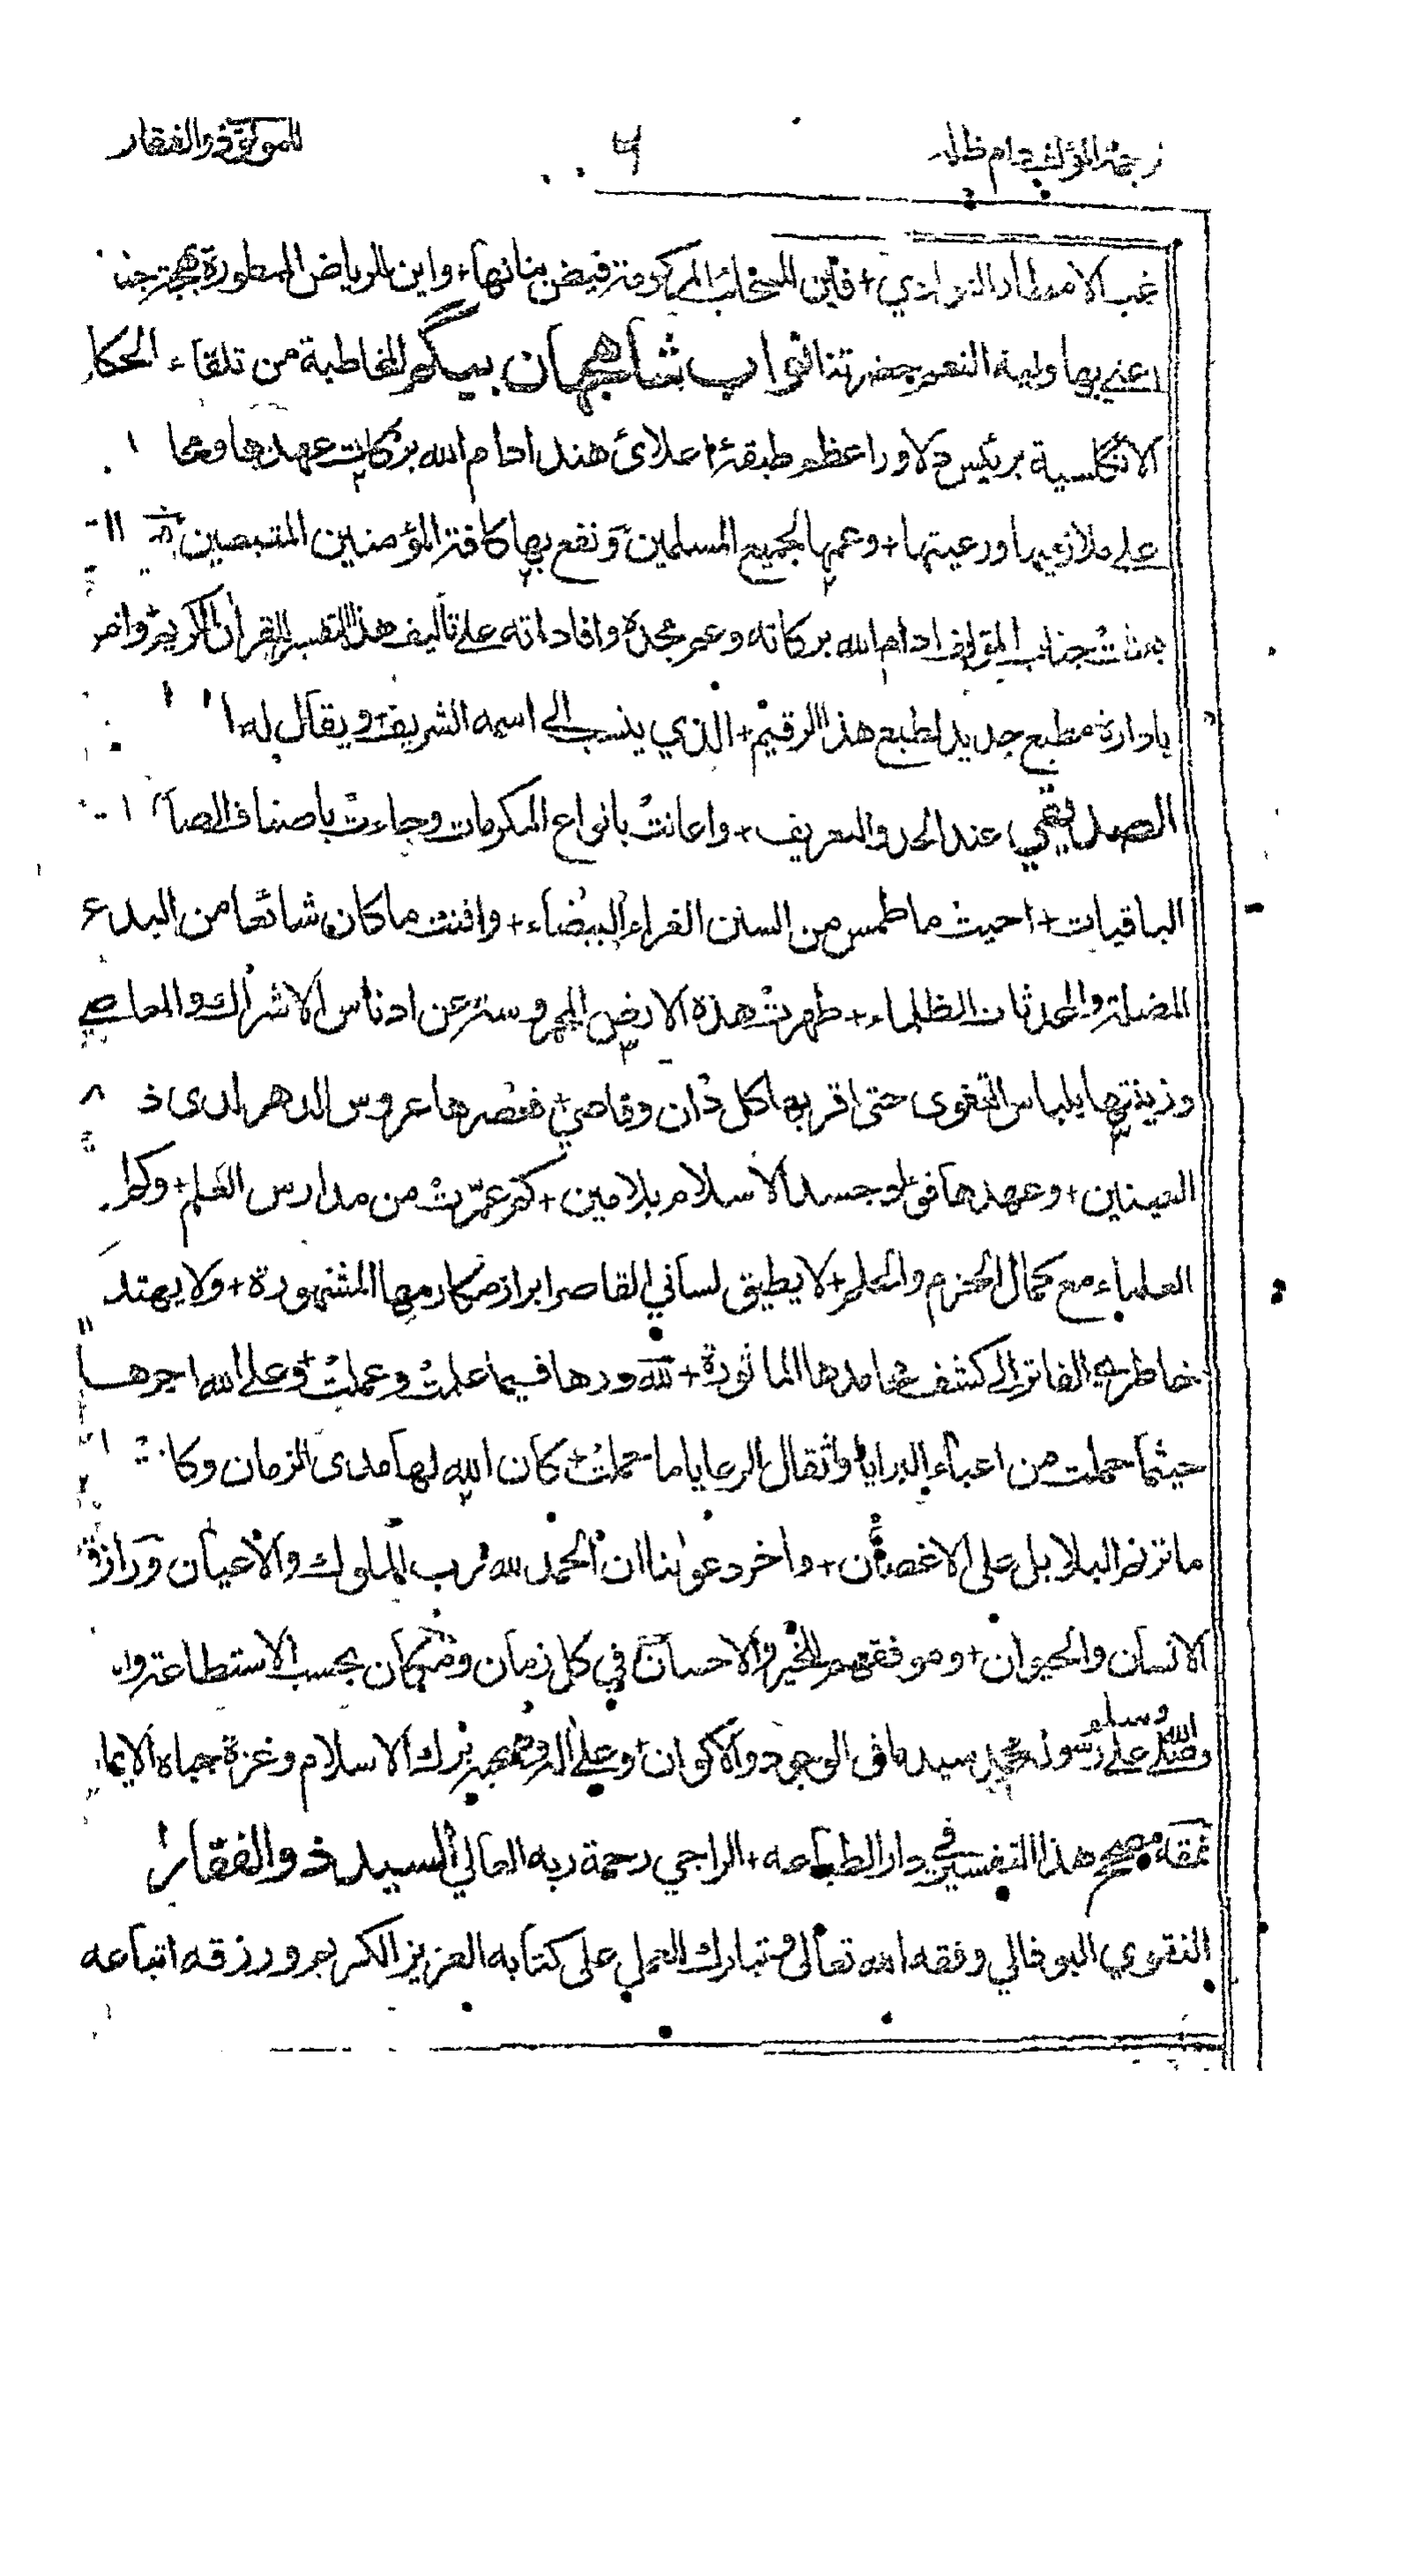 ترجمة المؤلف دام ظله ٦ للمولوي ذوالفقار
غب الامطار الغوادي + فاين السحائب المركومة من فيض بنانها + واين الرياض الممطورة من بهجة
اعني بها ولية النعم حضرتنا نواب شاهجهان بيگم المخاطبة من تلقاء الحكا
الانكلسية برئيس دلاور اعظم طبقۂ اعلائ هند ادام الله بركات عهدها
على ملازميها ورعيتها + وعم بها لجميع المسلمين ونفع بها كافة المؤمنين المتبصين
بعثت جناب المؤلف ادام الله بركاته وعم مجده وافاداته على تاليف هذا التفسير للقرآن الكريم وامر
بادارة مطبع جديد لطبع هذا الرقيم + الذي ينسب الى اسمه الشريف ويقال له
الصديقي عند الحد والتعريف + واعانت بانواع المكرمات وجاءت باصناف
الباقيات + احيت ما طمس من السنن الغراء البيضاء + وافنت ما كان شائعا من البدع
المضلة والمحدثات الظلماء + طهرت هذه الارض المحروسة عن ادناس الاشراك والمعاصي
وزينتها بلباس التقوى حتى اقر بها كل دان وقاصي + فعصرها عروس الدهر لدى
العينين + وعهدها فؤاد جسد الاسلام بلا مين + كم عمرت من مدارس العلم +
العلماء مع كمال الحزم والحلم + لا يطيق لساني القاصر ابراز مكارمها المشهورة + ولا يهتد
خاطري الفاتر الى كشف محامدها الماثورة + لله درها فيما علمت وعملت + وعلى الله اجرها
حيثما حملت من اعباء البرايا واثقال الرعايا ما حملت + كان الله لها مدى الزمان وكا
ما ترنم البلابل على الاغصان + واخر دعوانا ان الحمد لله رب الملوك والاعيان ورازق
الانسان والحيوان + وموفقهم للخير والاحسان في كل زمان ومكان بحسب الاستطاعة
وصلى الله وسلم على رسوله محمد سيد مافى الوجود والاكوان + وعلى اله وصحبه ترك الاسلام وغرة جباه الايما
نمقه مصحح هذا التفسير في دار الطباعه + الراجي رحمة ربه العالي السيد ذوالفقار
النقوي البوفالي وفقه الله تعالى وتبارك العمل على كتابه العزيز الكريم ورزقه اتباعه